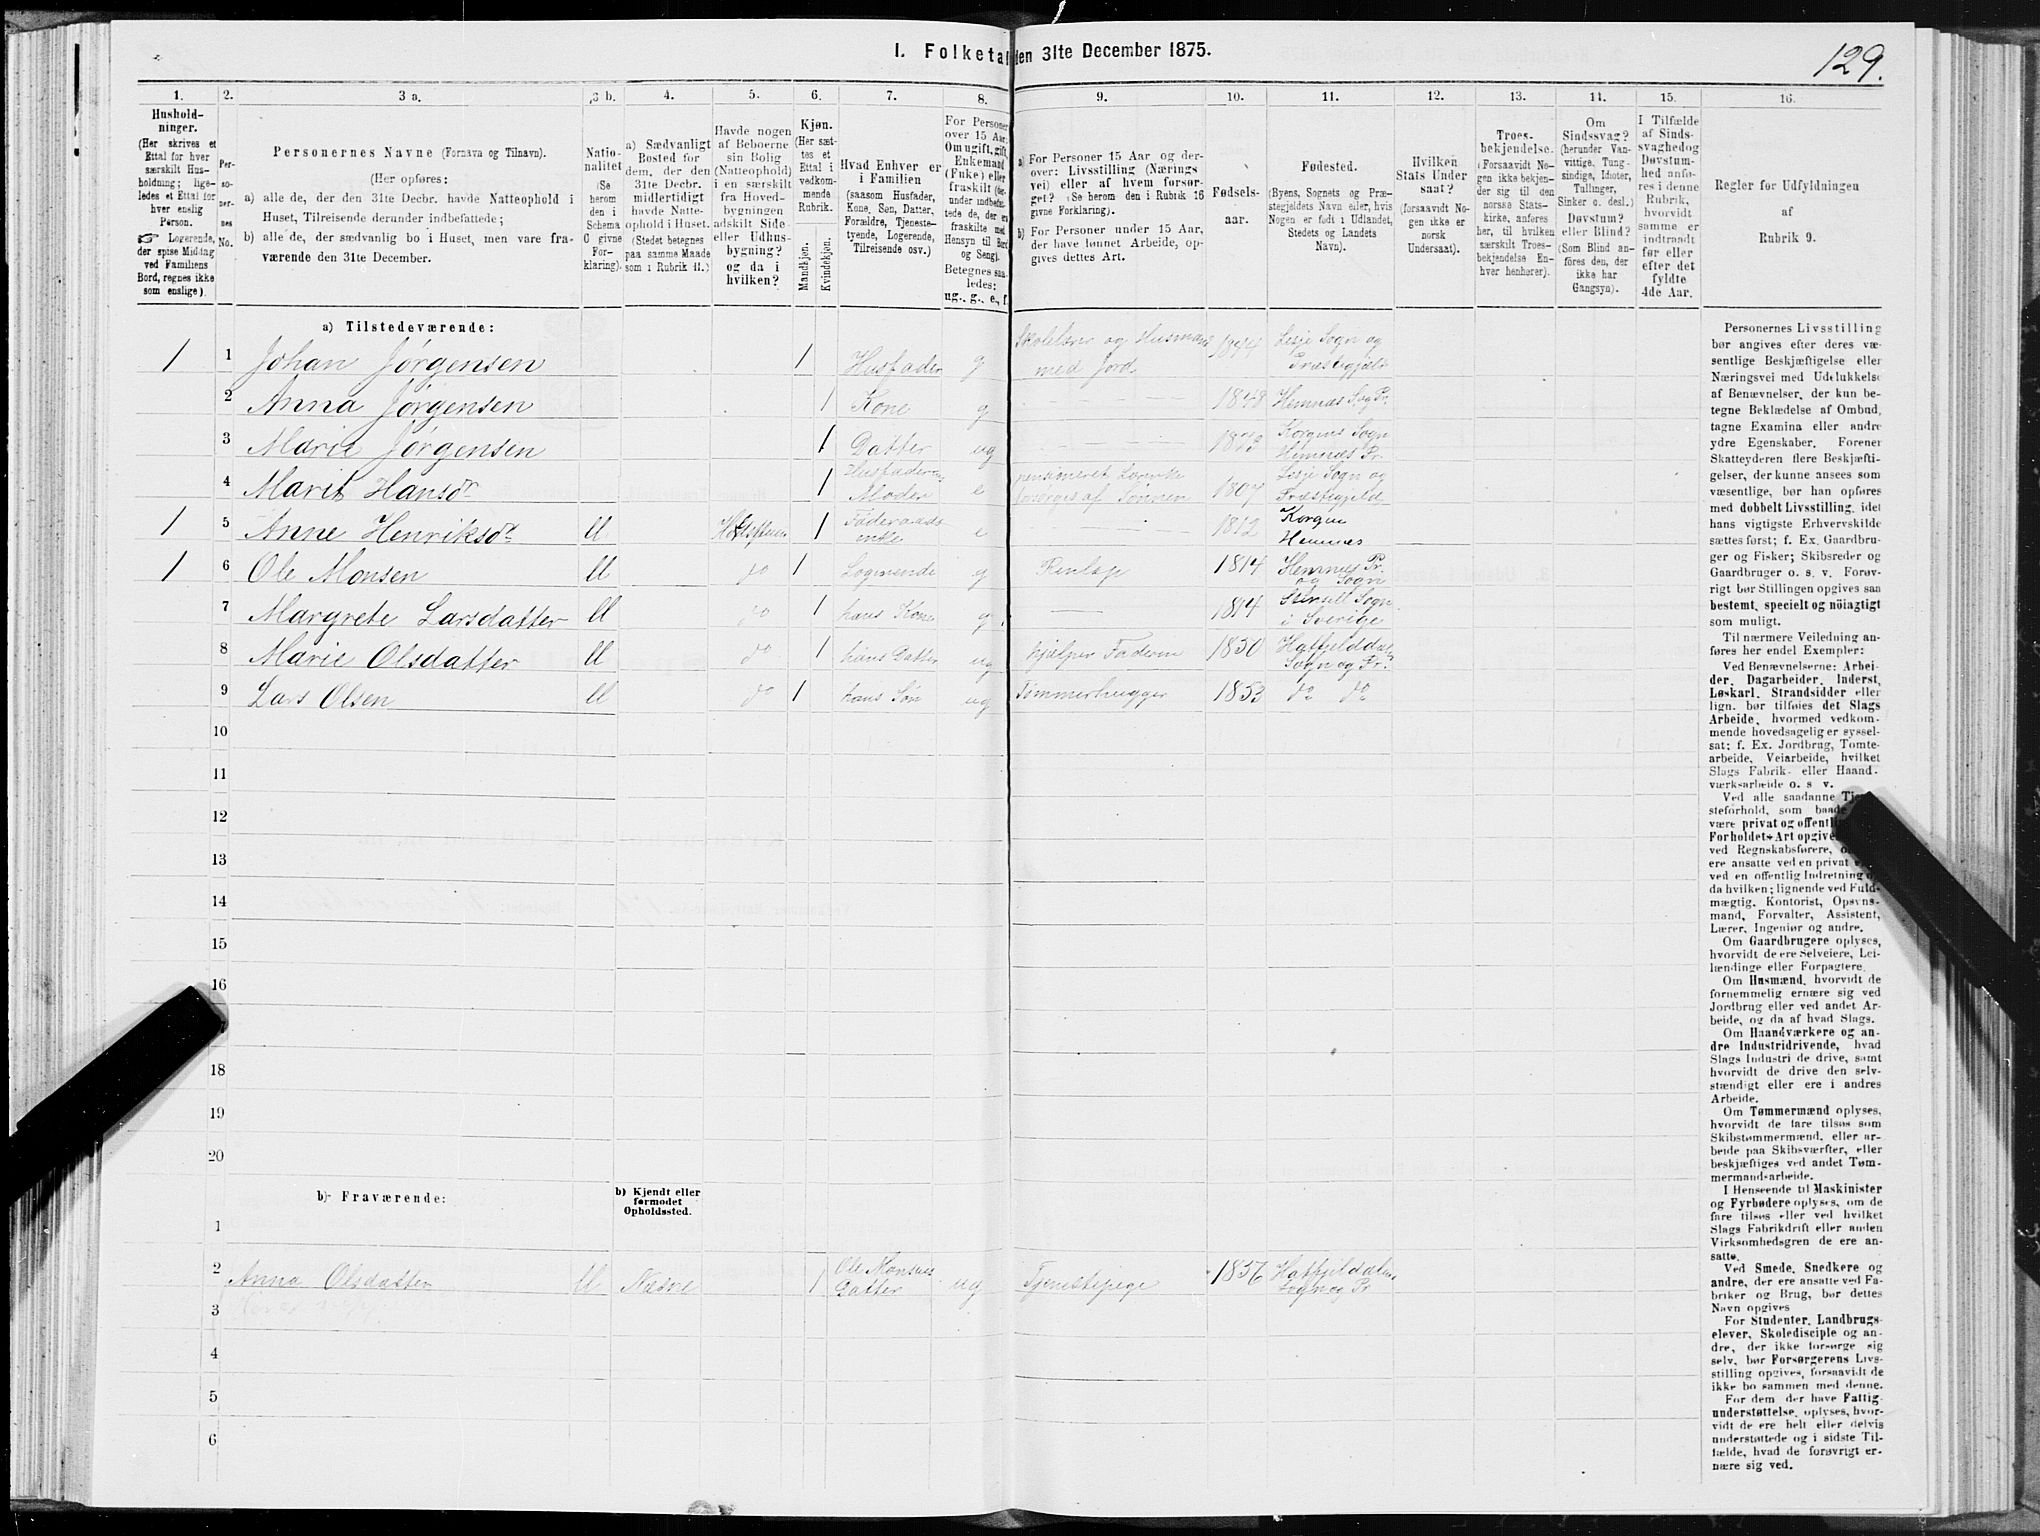 I. Folketal den 31te December 1875.
129.
1. 2. 3 a. 3 b. 4. 5. 6. 7. 8. 9. 10. 11. 12. 13. 14. 15. 16.
Hushold-
ninger.
(Her skrives et
Ettal for hver
særskilt Hus-
holdning; lige-
ledes et Ettal for
hver enslig
Person.
☞ Logerende,
der spise Middag
ved Familiens
Bord, regnes ikke
som enslige).
Per-
so-
ner-
nes
No.
Personernes Navne (Fornavn og Tilnavn).
(Her opføres:
a) alle de, der den 31te Decbr. havde Natteophold i
Huset, Tilreisende derunder indbefattede;
b) alle de, der sædvanlig bo i Huset, men vare fra-
værende den 31te December.
Natio-
nalitet
(Se
herom
den i
Schema
C givne
For-
klaring).
a) Sædvanligt
Bosted for
dem, der den
31te Decbr.
midlertidigt
havde Natte-
ophold i Huset.
(Stedet betegnes
paa samme Maade
som i Rubrik 11.)
Havde nogen
af Beboerne
sin Bolig
(Natteophold)
i en særskilt
fra Hoved-
bygningen
adskilt Side-
eller Udhus-
bygning?
og da i
hvilken?
Kjøn.
(Her sæt-
tes et
Ettal i
vedkom-
mende
Rubrik.
Mandkjøn.
Kvindekjøn.
Hvad Enhver er
i Familien
(saasom Husfader,
Kone, Søn, Datter,
Forældre, Tjeneste-
tyende, Logerende,
Tilreisende osv.)
For Personer
over 15 Aar:
Om ugift, gift,
Enkemand
(Enke) eller
fraskilt (der-
under indbefat-
tede de, der ere
fraskilte med
Hensyn til Bord
og Seng).
Betegnes saa-
ledes:
ug., g., e., f.
a) For Personer 15 Aar og der-
over: Livsstilling (Nærings-
vei) eller af hvem forsør-
get? (Se herom den i Rubrik 16
givne Forklaring).
b) For Personer under 15 Aar,
der have lønnet Arbeide, op-
gives dettes Art.
Fødsels-
aar.
Fødested.
(Byens, Sognets og Præ-
stegjeldets Navn eller, hvis
Nogen er født i Udlandet,
Stedets og Landets
Navn).
Hvilken
Stats Under
saat?
(forsaavidt No-
gen ikke er
norsk
Undersaat).
Troes-
bekjendelse.
(Forsaavidt No-
gen ikke bekjen-
der sig til den
norske Stats-
kirke, anføres
her, til hvilken
særskilt Troes-
bekjendelse En-
hver henhører).
Om
Sindssvag?
(herunder Van-
vittige, Tung-
sindige, Idioter,
Tullinger,
Sinker o. desl.)
Døvstum?
eller Blind?
(Som Blind an-
føres den, der
ikke har
Gangsyn).
I Tilfælde
af Sinds-
svaghed og
Døvstum-
hed anfø-
res i denne
Rubrik,
hvorvidt
samme er
indtraadt
før eller
efter det
fyldte
4de Aar.
Regler for Udfyldningen
af
Rubrik 9.
a) Tilstedeværende:
1 1 Johan Jørgensen 1 Husfader g Skolelærer og Husmand med Jord 1844 Lesje Sogn og Præstegjeld
2 Anna Jørgensen 1 Kone g 1848 Hemnæs S. og Pr.
3 Marie Jørgensen 1 Datter ug 1873 Korgens Sogn Hemnæs Pr.
4 Marit Hansdr 1 Husfaderens Moder e pensioneret Lærerenke forsørges af Sønnen 1807 Lesje Sogn og Præstegjeld
1 5 Anne Henriksdr U 1 Føderaads enke e 1812 Korgen Hemnæs
1 6 Ole Monsen U do 1 Logerende g 1814 Hemnæs Pr. og Sogn
7 Margrete Larsdatter U do 1 hans Kone g. 1814 Sogn i Sverige
8 Marie Olsdatter U do 1 hans Datter ug hjælper Faderen 1850 Hatfjelddalen Sogn og Pr.
9 Lars Olsen U do 1 hans Søn ug Tømmerhugger 1853 do do
10
11
12
13
14
15
16
18
19
20
b) Fraværende:
b) Kjendt eller
formodet
Opholdssted.
1
2 Anna Olsdatter U 1 Ole Monsens Datter ug Tjenestepige 1856 Hatfjelddalens Sogn og Pr
3
4
5
6
Personernes Livsstilling
bør angives efter deres væ-
sentlige Beskjæftigelse eller
Næringsvei med Udelukkelse
af Benævnelser, der kun be-
tegne Beklædelse af Ombud,
tagne Examina eller andre
ydre Egenskaber. Forener
Skatteyderen flere Beskjæfti-
gelser, der kunne ansees som
væsentlige, bør han opføres
med dobbelt Livsstilling, idet
hans vigtigste Erhvervskilde
sættes først; f. Ex. Gaardbru-
ger og Fisker; Skibsreder og
Gaardbruger o. s. v. Forøv-
rigt bør Stillingen opgives saa
bestemt, specielt og nöiagtigt
som muligt.
Til nærmere Veiledning an-
føres her endel Exempler:
Ved Benævnelserne: Arbei-
der, Dagarbeider, Inderst,
Løskarl, Strandsidder eller
lign. bør tilføies det Slags
Arbeide, hvormed vedkom-
mende hovedsagelig er syssel-
sat; f. Ex. Jordbrug, Tomte-
arbeide, Veiarbeide, hvilket
Slags Fabrik- eller Haand-
værksarbeide o. s. v.
Ved alle saadanne Tje
steforhold, som baade
være privat og offentli
Forholdets Art opgive
ved Regnskabsførere,
ere ansatte ved en privat
ved en offentlig Indretning
da hvilken; lignende ved Fuld-
mægtig, Kontorist, Opsyns-
mand, Forvalter, Assistent,
Lærer, Ingeniør og andre.
Om Gaardbrugere oplyses,
hvorvidt de ere Selveiere, Lei-
lændinge eller Forpagtere.
Om Husmænd, hvorvidt de
fornemmelig ernære sig ved
Jordbrug eller ved andet Ar-
beide, og da af hvad Slags.
Om Haandværkere og an-
dre Industridrivende, hvad
Slags Industri de drive, samt
hvorvidt de drive den selv-
stændigt eller ere i andres
Arbeide.
Om Tømmermænd oplyses,
hvorvidt de fare tilsøs som
Skibstømmermænd, eller ar-
beide paa Skibsværfter, eller
beskjæftiges ved andet Tøm-
mermandsarbeide.
I Henseende til Maskinister
og Fyrbødere oplyses, om de
fare tilsøs eller ved hvilket
Slags Fabrikdrift eller anden
Virksomhedsgren de ere an-
satte.
Ved Smede, Snedkere og
andre, der ere ansatte ved Fa-
briker og Brug, bør dettes
Navn opgives
For Studenter, Landbrugs-
elever, Skoledisciple og an-
dre, der ikke forsørge sig
selv, bør Forsørgerens Livs-
stilling opgives, forsaavidt de
ikke bo sammen med denne.
For dem der have Fattig-
understøttelse, oplyses, hvor-
vidt de ere helt eller delvis
understøttede og i sidste Til-
fælde, hvad de forøvrigt er-
nære sig ved.